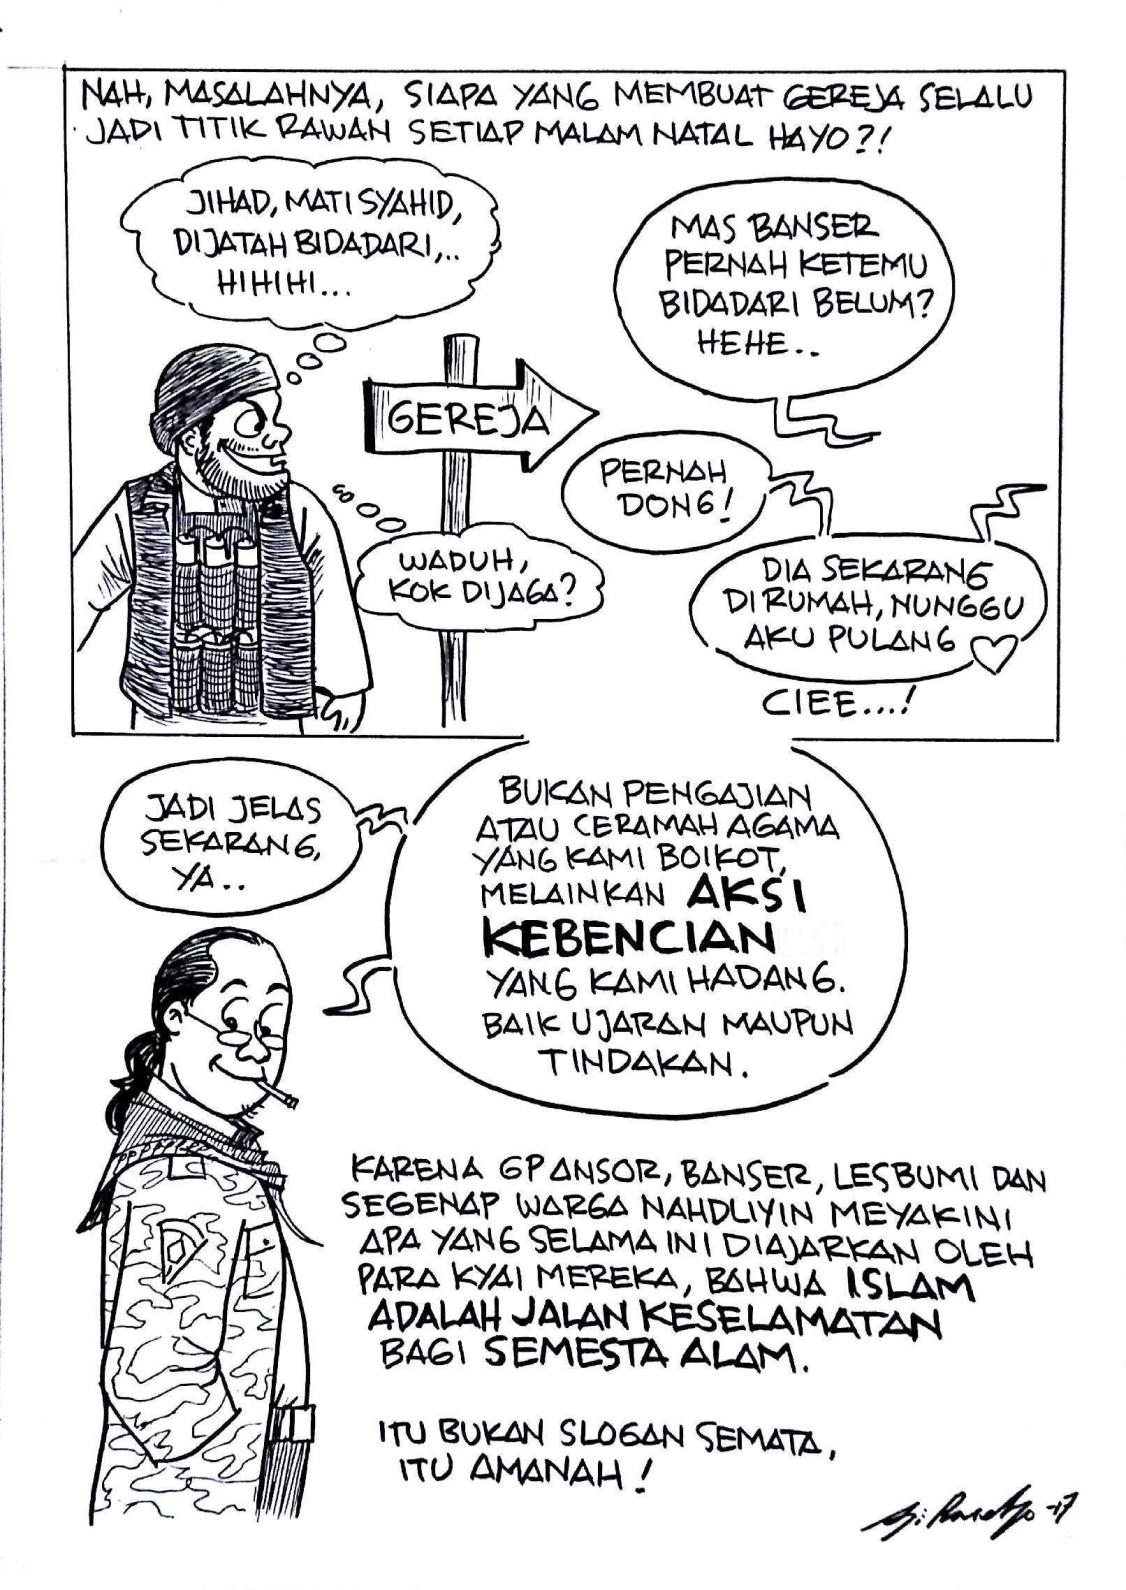 NAH, MASALAHNYA, SIAPA YANG MEMBUAT GEREJA SELALU
JADI TITIK RAWAN SETIAP MALAM NATAL HAYO?!
JIHAD, MATI SYAHID,
DIJATAH BIDADARI,..
HIHIHI...
MAS BANSER
PERNAH KETEMU
BIDADARI BELUM?
HEHE..
GEREJA
PERNAH
DONG!
WADUH,
KOK DIJAGA?
DIA SEKARANG
DI RUMAH, NUNGGU
AKU PULANG ♡
CIEE...!
JADI JELAS
SEKARANG,
YA..
BUKAN PENGAJIAN
ATAU CERAMAH AGAMA
YANG KAMI BOIKOT,
MELAINKAN AKSI
KEBENCIAN
YANG KAMI HADANG.
BAIK UJARAN MAUPUN
TINDAKAN.
KARENA GP ANSOR, BANSER, LESBUMI DAN
SEGENAP WARGA NAHDLIYIN MEYAKINI
APA YANG SELAMA INI DIAJARKAN OLEH
PARA KYAI MEREKA, BAHWA ISLAM
ADALAH JALAN KESELAMATAN
BAGI SEMESTA ALAM.
ITU BUKAN SLOGAN SEMATA,
ITU AMANAH!
-17